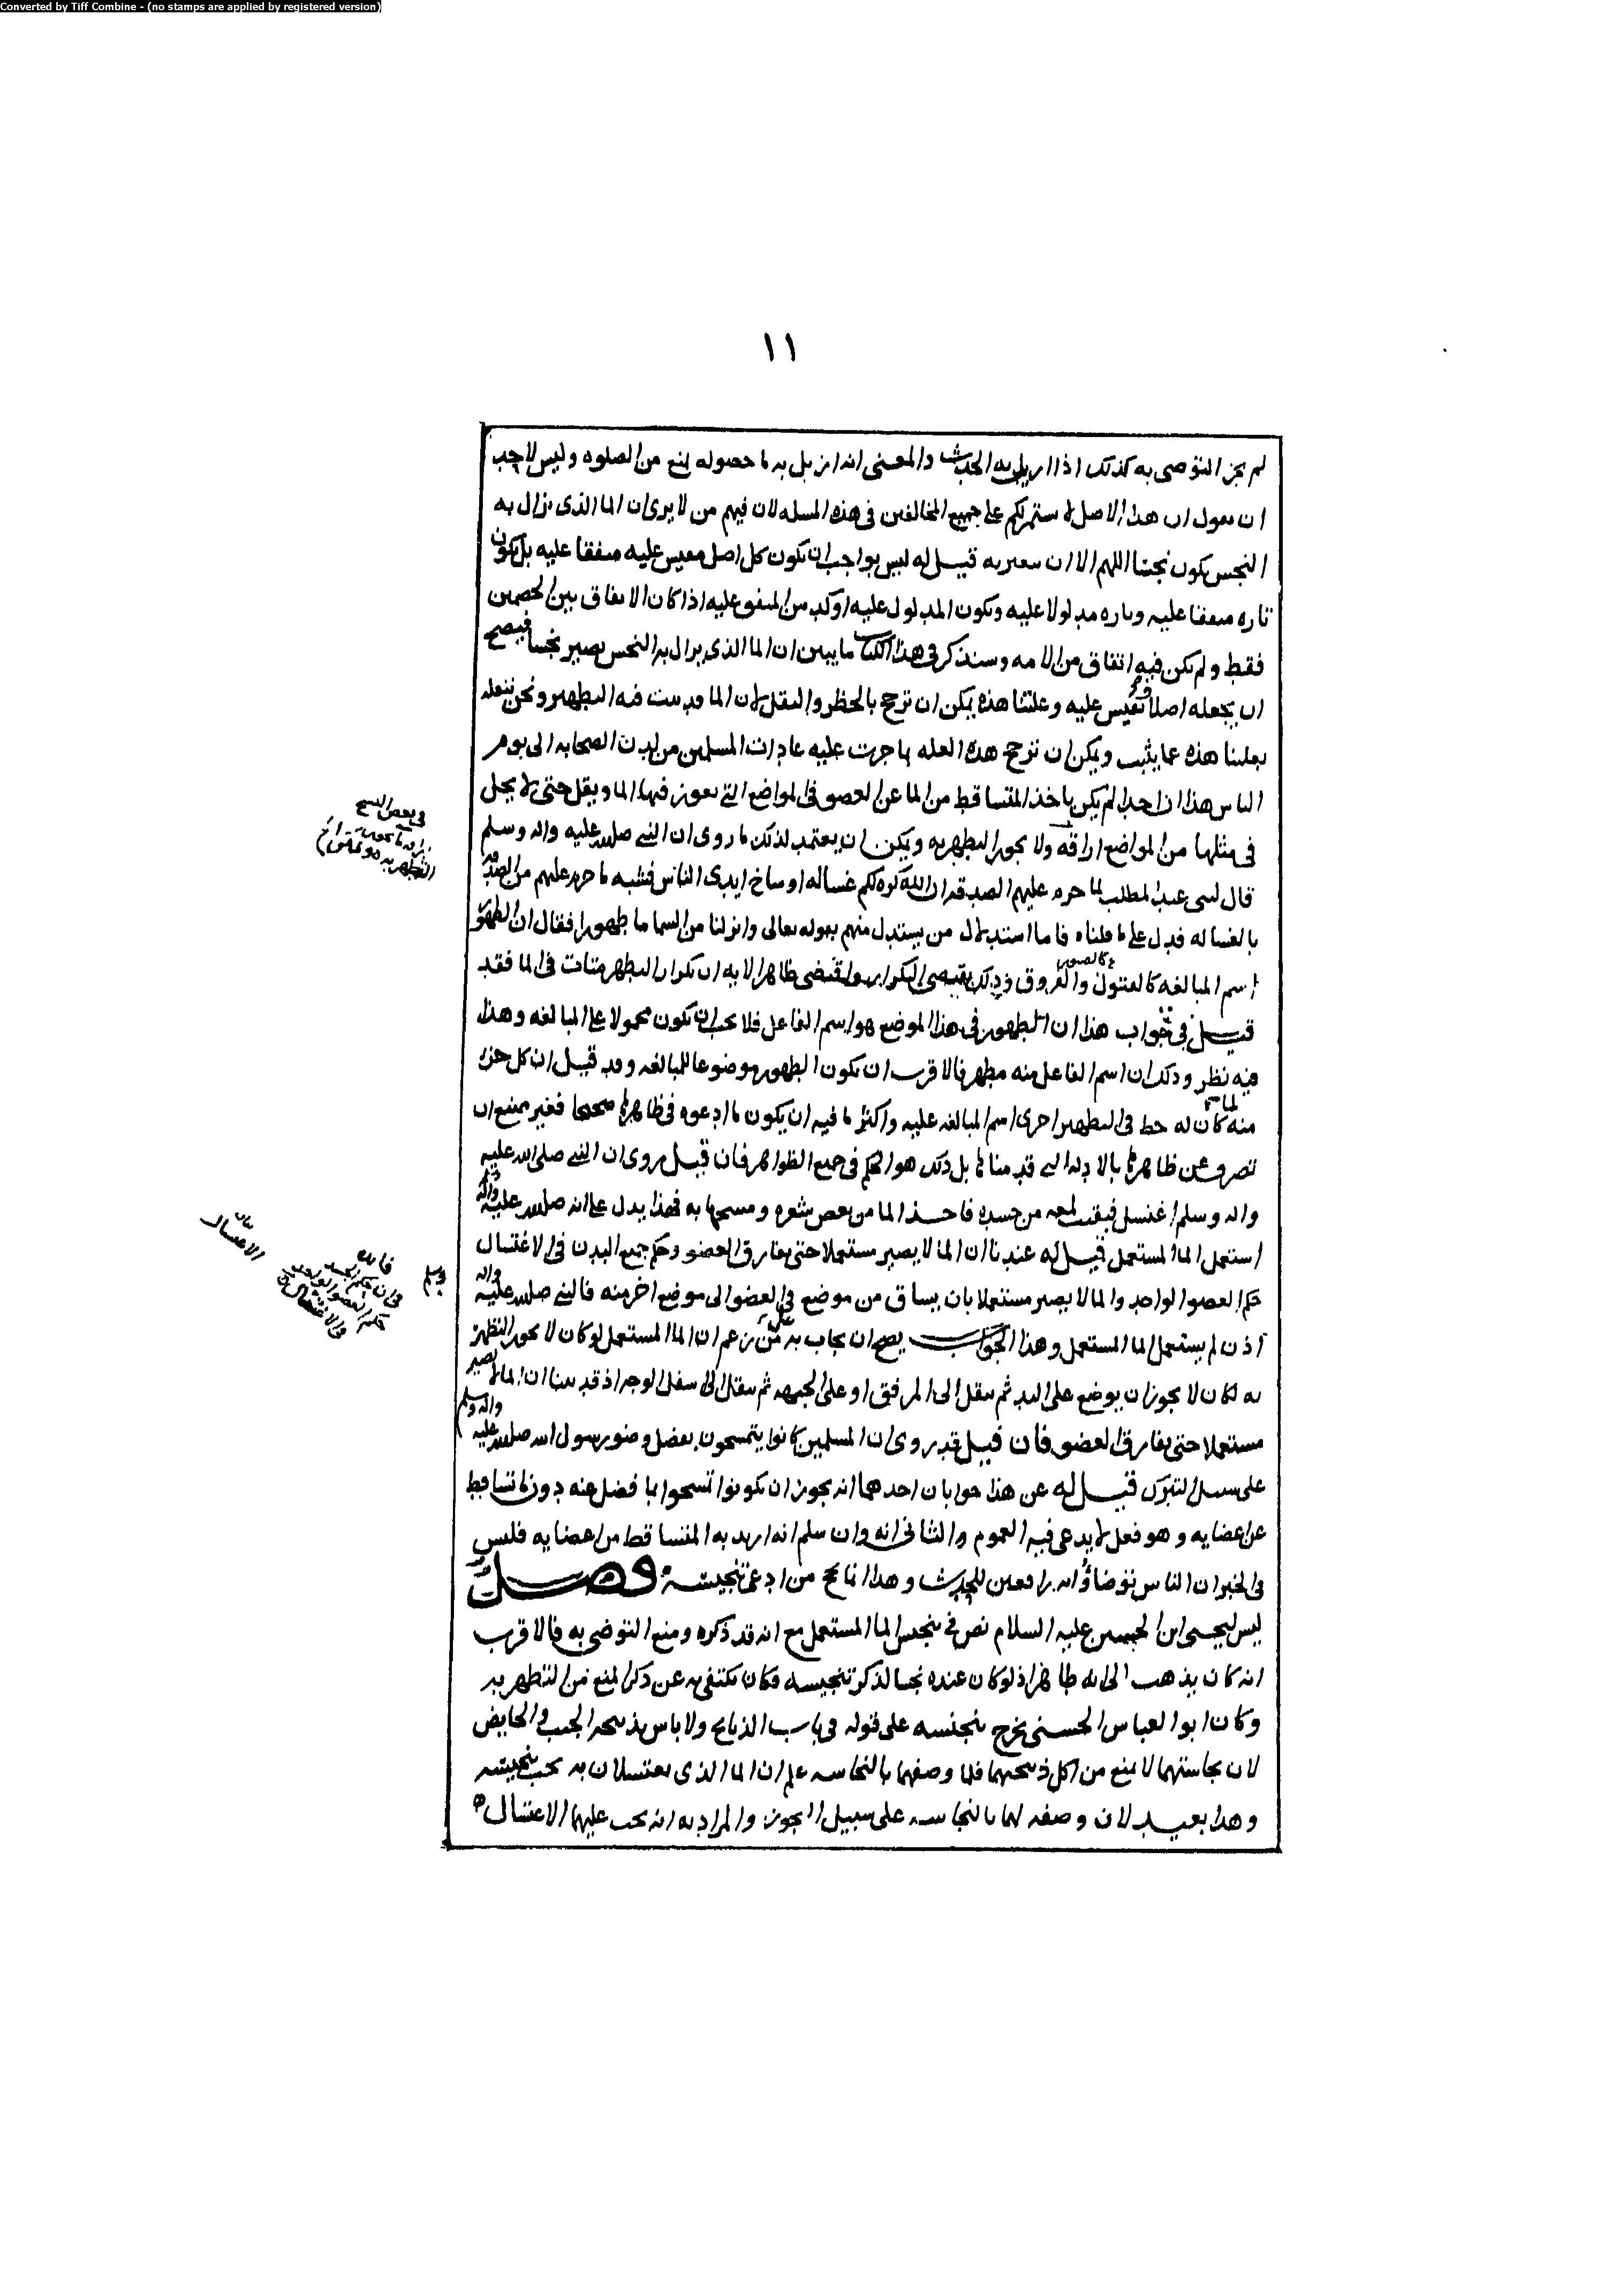 Converted by Tiff Combine - (no stamps are applied by registered version)
١١
لم يجز التوضي به كذلك اذا ازيل به الحدث والمعنى انه ازيل به ما حصوله يمنع من الصلوه وليس لاحد
ان يقول ان هذا الاصل لا يستمر لكم على جميع المخالفين في هذه المسله لان فيهم من لا يرى ان الما الذي يزال به
النجس يكون نجسا اللهم الا ان نعتبر به قيل له ليس بواجب ان يكون كل اصل مقيس عليه متفقا عليه بل يكون
تاره متفقا عليه وتاره مدلولا عليه ويكون المدلول عليه اوكد من المتفق عليه اذا كان الاتفاق بين الخصمين
فقط ولم يكن فيه اتفاق من الامه وسنذكر في هذا الكتاب ما يبين ان الما الذي يزال به النجس يصير نجسا فيصح
ان نجعله اصلا نقيس عليه وعلتنا هذه يمكن ان ترجح بالحظر والنقل لان الما قد ثبت فيه التطهير ونحن ننقله
بعلتنا هذه عما يثبت ويمكن ان ترجح هذه العله بما جرت عليه عادات المسلمين من لدن الصحابه الى يوم
الناس هذا ان احدا لم يكن ياخذ المتساقط من الما عن العضو في المواضع التي يعوز فيها الما ويقل حتى لا يحل
في مثلها من المواضع اراقته ولا يجوز التطهر به ويمكن ان يعتمد لذلك ما روي ان النبي صلى الله عليه واله وسلم
قال لبني عبد المطلب لما حرم عليهم الصدقه ان الله كره لكم غساله اوساخ ايدي الناس فشبه ما حرم عليهم من الصدقه
بالغساله فدل على ما قلناه فاما استدلال من يستدل منهم بقوله تعالى وانزلنا من السما ما طهورا فقال ان الطهور
اسم المبالغه كالقتول والفروق وذلك يقتضي التكرار واقتضى ظاهر الايه ان تكرار التطهر متات في الما فقد
كالصبور
قيل في جواب هذا ان الطهور في هذا الموضع هو اسم الفاعل فلا يجب ان يكون محمولا على المبالغه وهذا
فيه نظر وذلك ان اسم الفاعل منه مطهر فالاقرب ان يكون الطهور موضوعا للمبالغه وقد قيل ان كل جزء
منه لما كان له حظ في التطهير اجرى اسم المبالغه عليه واكثر ما فيه ان يكون ما ادعوه في ظاهرها صحيحا فغير ممتنع ان
تصرف عن ظاهرها بالادله التي قدمناها بل ذلك هو الحكم في جميع الظواهر فان قيل روي ان النبي صلى الله عليه
واله وسلم اغتسل فبقيت لمعه من جسده فاخذ الما من بعض شعره ومسحها به فهذا يدل على انه صلى الله عليه واله
وسلم
استعمل الما المستعمل قيل له عندنا ان الما لا يصير مستعملا حتى يفارق العضو وحكم جميع البدن في الاغتسال
حكم العضو الواحد والما لا يصير مستعملا بان يساق من موضع في العضو الى موضع اخر منه فالنبي صلى الله عليه واله
اذن لم يستعمل الما المستعمل وهذا الجواب يصح ان يجاب به من زعم ان الما المستعمل لو كان لا يجوز التطهر
به لكان لا يجوز ان يوضع على اليد ثم ينقل الى المرفق او على الجبهه ثم ينقل الى اسفل الوجه اذ قد بينا ان الما لا يصير
مستعملا حتى يفارق العضو فان قيل قد روي ان المسلمين كانوا يتمسحون بفضل وضو رسول الله صلى الله عليه واله وسلم
على سبيل التبرك قيل له عن هذا جوابان احدهما انه يجوز ان يكونوا تمسحوا بما فضل عنه دون ما تساقط
عن اعضايه وهو فعل لا يدعى فيه العموم والثاني انه وان سلم انه اريد به المتساقط من اعضايه فليس
في الخبر ان الناس توضاؤا به رافعين للحدث وهذا انما يحج من ادعى تنجيسه فصل
ليس ليحيى ابن الحسين عليه السلام نص في تنجيس الما المستعمل مع انه قد ذكره ومنع التوضي به فالاقرب
انه كان يذهب الى انه طاهر اذ لو كان عنده نجسا لذكر تنجيسه فكان يكتفى به عن ذكر المنع من التطهر به
وكان ابو العباس الحسني يخرج تنجيسه على قوله في باب الذبايح ولا باس بذبيحه الجنب والحايض
لان نجاستهما لا تمنع من اكل ذبيحتهما فلما وصفهما بالنجاسه علم ان الما الذي يغتسلان به يجب تنجيسه
وهذا بعيد لان وصفه لهما بالنجاسه على سبيل التجوز والمراد به انه يجب عليهما الاغتسال
في بعض النسخ
التطهر به
بيان
الاغتسال
فايده
في ان حكم الجسد
حكم العضو الواحد
في الاغتسال